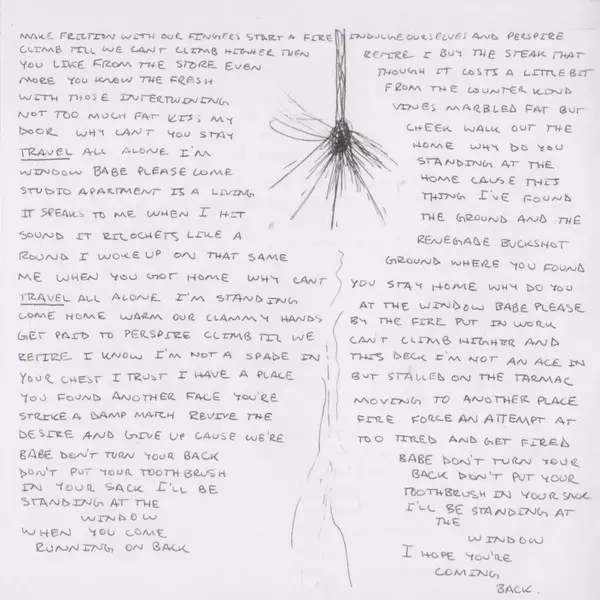 MAKE FRICTION WITH OUR FINGERS START A FIRE INDULGE OURSELVES AND PERSPIRE
CLIMB TILL WE CANT CLIMB HIGHER THEN RETIRE I BUY THE STEAK THAT
YOU LIKE FROM THE STORE EVEN THOUGH IT COSTS A LITTLE BIT
MORE YOU KNOW THE FRESH FROM THE COUNTER KIND
WITH THOSE INTERTWINING VINES MARBLED FAT BUT
NOT TOO MUCH FAT KISS MY CHEEK WALK OUT THE
DOOR WHY CANT YOU STAY HOME WHY DO YOU
TRAVEL ALL ALONE I'M STANDING AT THE
WINDOW BABE PLEASE COME HOME CAUSE THIS
STUDIO APARTMENT IS A LIVING THING I'VE FOUND
IT SPEAKS TO ME WHEN I HIT THE GROUND AND THE
SOUND IT RICOCHETS LIKE A RENEGADE BUCKSHOT
ROUND I WOKE UP ON THAT SAME GROUND WHERE YOU FOUND
ME WHEN YOU GOT HOME WHY CANT YOU STAY HOME WHY DO YOU
TRAVEL ALL ALONE I'M STANDING AT THE WINDOW BABE PLEASE
COME HOME WARM OUR CLAMMY HANDS BY THE FIRE PUT IN WORK
GET PAID TO PERSPIRE CLIMB TIL WE CAN'T CLIMB HIGHER AND
RETIRE I KNOW I'M NOT A SPADE IN THIS DECK I'M NOT AN ACE IN
YOUR CHEST I TRUST I HAVE A PLACE BUT STALLED ON THE TARMAC
YOU FOUND ANOTHER FACE YOU'RE MOVING TO ANOTHER PLACE
STRIKE A DAMP MATCH REVIVE THE FIRE FORCE AN ATTEMPT AT
DESIRE AND GIVE UP CAUSE WE'RE TOO TIRED AND GET FIRED
BABE DON'T TURN YOUR BACK
DON'T PUT YOUR TOOTHBRUSH
IN YOUR SACK I'LL BE
STANDING AT THE
WINDOW
WHEN YOU COME
RUNNING ON BACK
BABE DON'T TURN YOUR
BACK DON'T PUT YOUR
TOOTHBRUSH IN YOUR SACK
I'LL BE STANDING AT
THE
WINDOW
I HOPE YOU'RE
COMING
BACK.